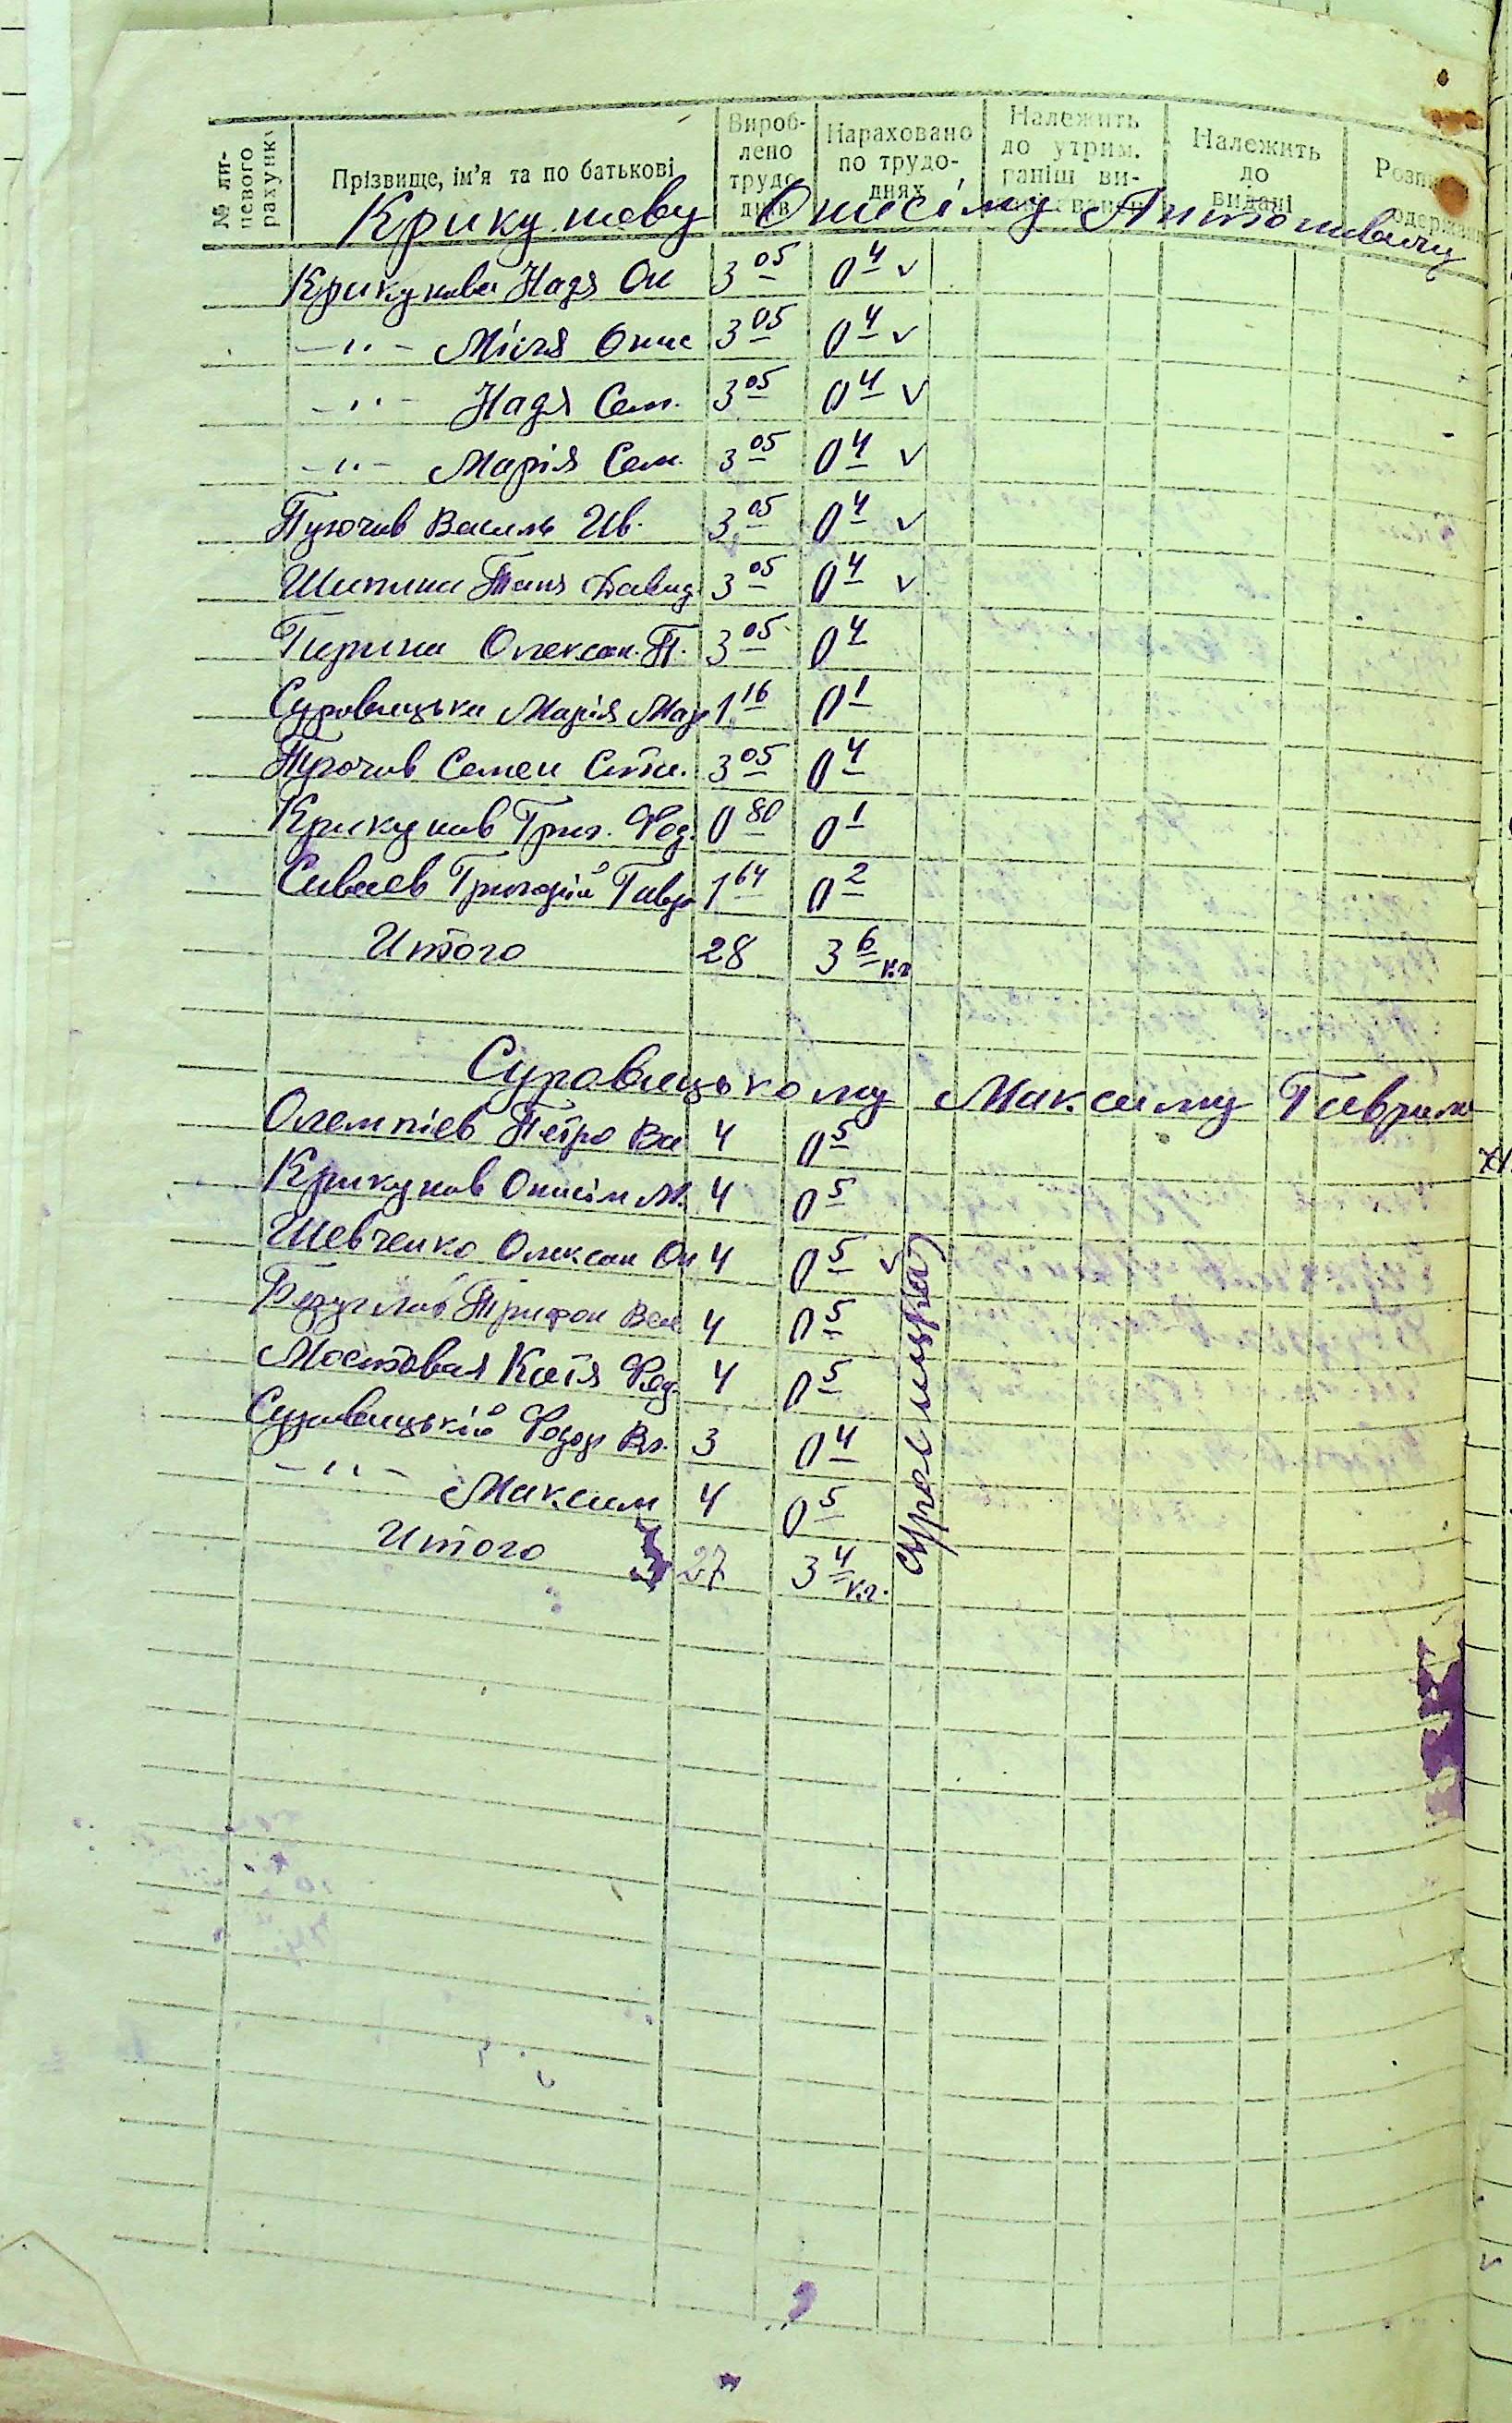 № ли-
цевого
рахунку
Прізвище, ім'я та по батькові
Вироб-
лено
трудо-
днів
Нараховано
по трудо-
днях
Належить
до утрим.
раніш ви-
Належить
до
видачі
Крикунову Онисіму Антоновичу
Крикунова Надя Он 3 05 0 4 v
—"— Міля Онис 3 05 0 4 v
—"— Надя Сем. 3 05 0 4 v
—"— Марія Сем. 3 05 0 4 v
Василь Ив. 3 05 0 4 v
Таня Давид 3 05 0 4 v
Олексан. П. 3 05 0 4
Суровицька Марія Мак 1 16 0 1
Семен 3 05 0 4
Крикунов Григ. Фед. 0 80 0 1
Сиваев Григорій Гавр 1 64 0 2
Итого 28 3 6 кг
Суровицькому Максиму Гаврил
Олемпіев Петро Ва 4 0 5
Крикунов Онисім М. 4 0 5
Шевченко Олексан Он 4 0 5 v
Трифон Вас 4 0 5
Мостовая Катя Фед. 4 0 5
Суровицькій Федор Вл. 3 0 4
—"— Максим 4 0 5
Итого 27 3 4 кг.